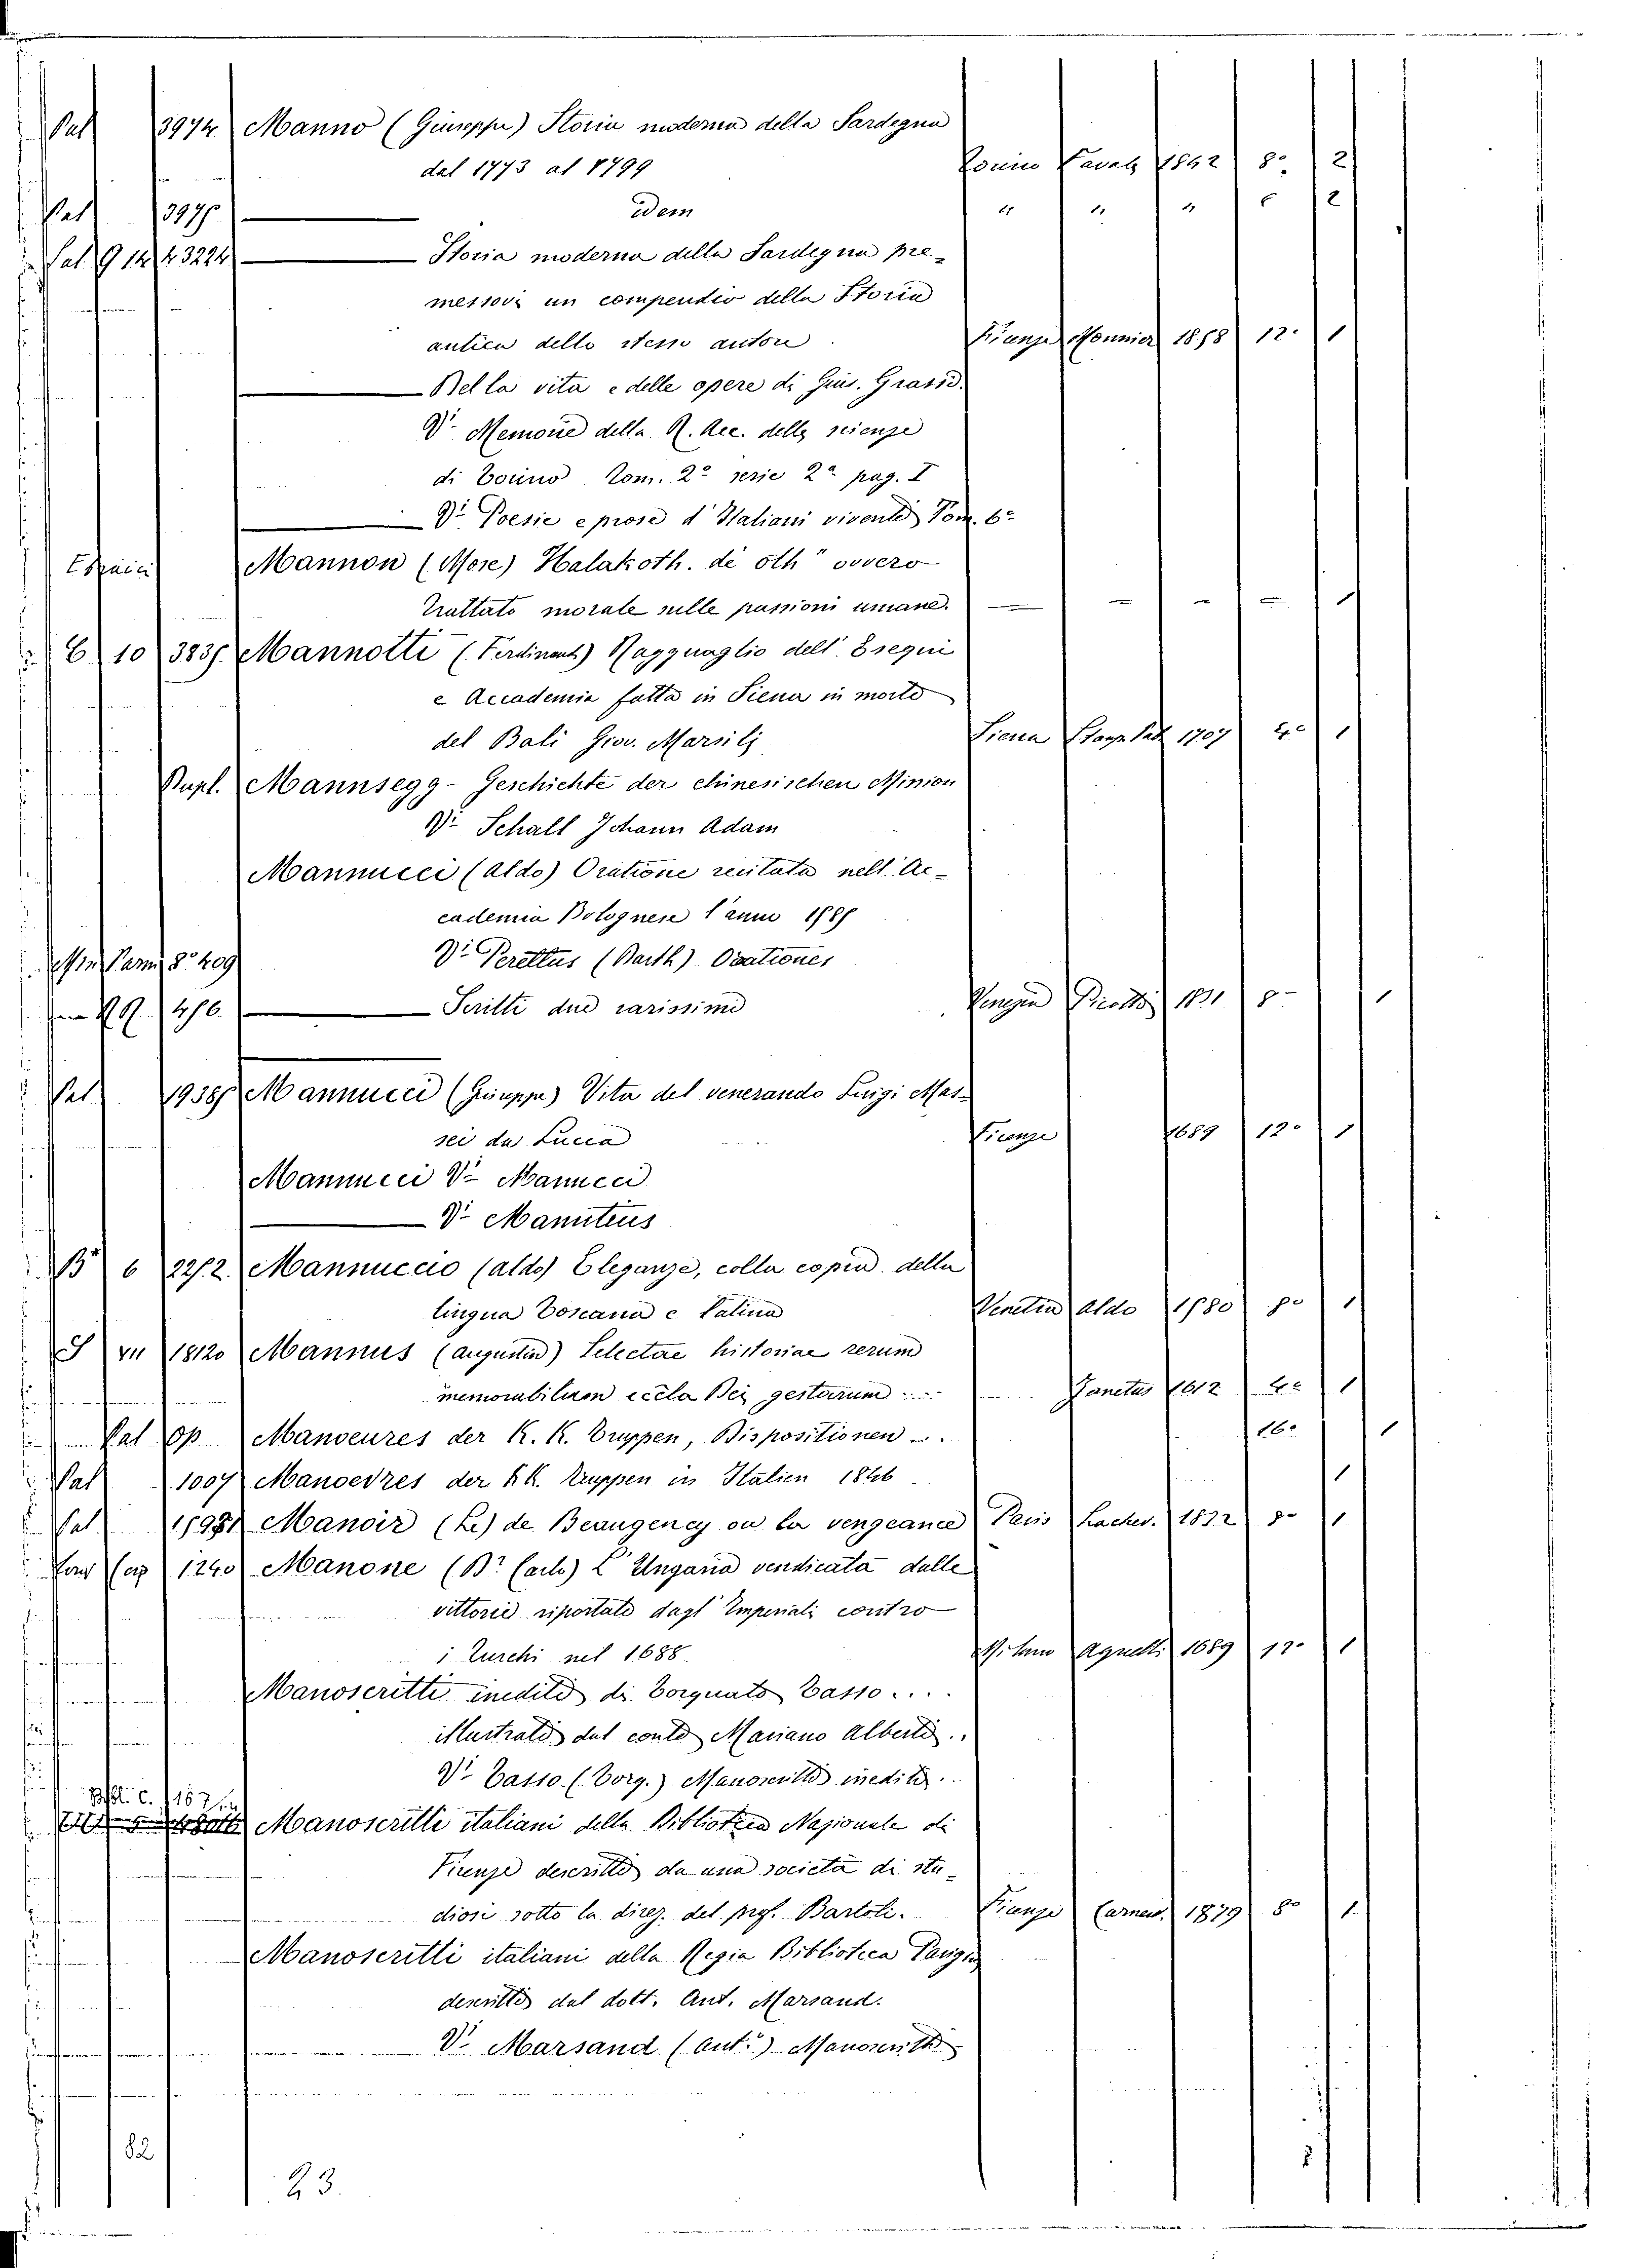 Pal 3974 Manno (Giuseppe) Storia moderna della Sardegna
dal 1773 al 1799 Torino Favale 1842 8º 2
Pal 3975 idem " " " 2
Pal. G 14 43224 Storia moderna della Sardegna pre-
messovi un compendio della Storia
antica dello stesso autore Firenze Monnier 1858 12º 1
Della vita e delle opere di Gius. Grassi.
Vi Memorie della R. Acc. delle scienze
di Torino. Tom. 2º serie 2ª pag. I
Vi Poesie e prose d'Italiani viventi Tom. 6º
Mannon (Mose) Halakoth. de oth" ovvero
Trattato morale sulle passioni umane. — — — — 1
6 10 3835 Mannotti (Ferdinand) Ragguaglio dell' Esequi
e Accademia fatta in Siena in morte
del Bali Giov. Marsilj Siena 1707 4º 1
Supl. Mannsegg - Geschichte der chinesischen Minion
Vi Schall Johann Adam
Mannucci (Aldo) Oratione recitata nell' Ac-
cademia Bolognese l'anno 1585
Vi Perettus (Barth) Orationes
8º 409
456 Scritti due rarissimi Venezia Picotti 1831 8º 1
Pal 19385 Mannucci (Giuseppe) Vita del venerando Luigi Mas-
sei da Lucca Firenze 1689 12º 1
Mannucci Vi Manucci
Vi Manutius
B 6 2252. Mannuccio (Aldo) Eleganze, colla copia della
lingua Toscana e Latina Venetia Aldo 1580 8º 1
VII 18120 Mannus (Augustin) Selectae historiae rerum
memorabilium eccla Dei gestarum ... 1612 4º 1
Pal Op Manoeures der K. K. Truppen, Dispositionen ... 16º 1
Pal 1007 Manoevres der KK. Truppen in Italien 1846 1
Pal. 15981 Manoir (Le) de Beaugency ou la vengeance Paris Lacher. 1832 8º 1
cap 1240 Manone (Br Carlo) L'Ungaria vendicata dalle
vittorie riportate dagl' Imperiali contro
i Turchi nel 1688 Milano Agnelli 1689 12º 1
Manoscritti inediti di Torquato Tasso ....
illustrati dal conte Mariano Alberti ..
Vi Tasso (Torq.) Manoscritti inediti ..
Bibl. C. 157
Manoscritti italiani della Biblioteca Nazionale di
Firenze descritti da una società di stu-
diosi sotto la direz. del prof. Bartoli. Firenze Carnes. 1879 8º 1
Manoscritti italiani della Regia Biblioteca Parigin
descritti dal dott. Ant. Marsand.
Vi Marsand (Antº) Manoscritti
82
23.